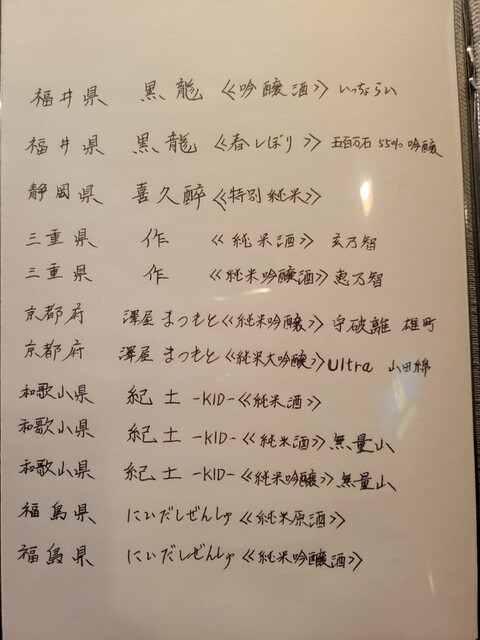 福井県 黒龍 《吟醸酒》 いっちょらい
福井県 黒龍 《春しぼり》 五百万石 55% 吟醸
静岡県 喜久醉 《特別純米》
三重県 作 《純米酒》 玄乃智
三重県 作 《純米吟醸酒》 恵乃智
京都府 澤屋まつもと 《純米吟醸》 守破離 雄町
京都府 澤屋まつもと 《純米大吟醸》 Ultra 山田綿
和歌山県 紀土 -KID- 《純米酒》
和歌山県 紀土 -KID- 《純米酒》 無量山
和歌山県 紀土 -KID- 《純米吟醸》 無量山
福島県 にいだしぜんしゅ 《純米原酒》
福島県 にいだしぜんしゅ 《純米吟醸酒》